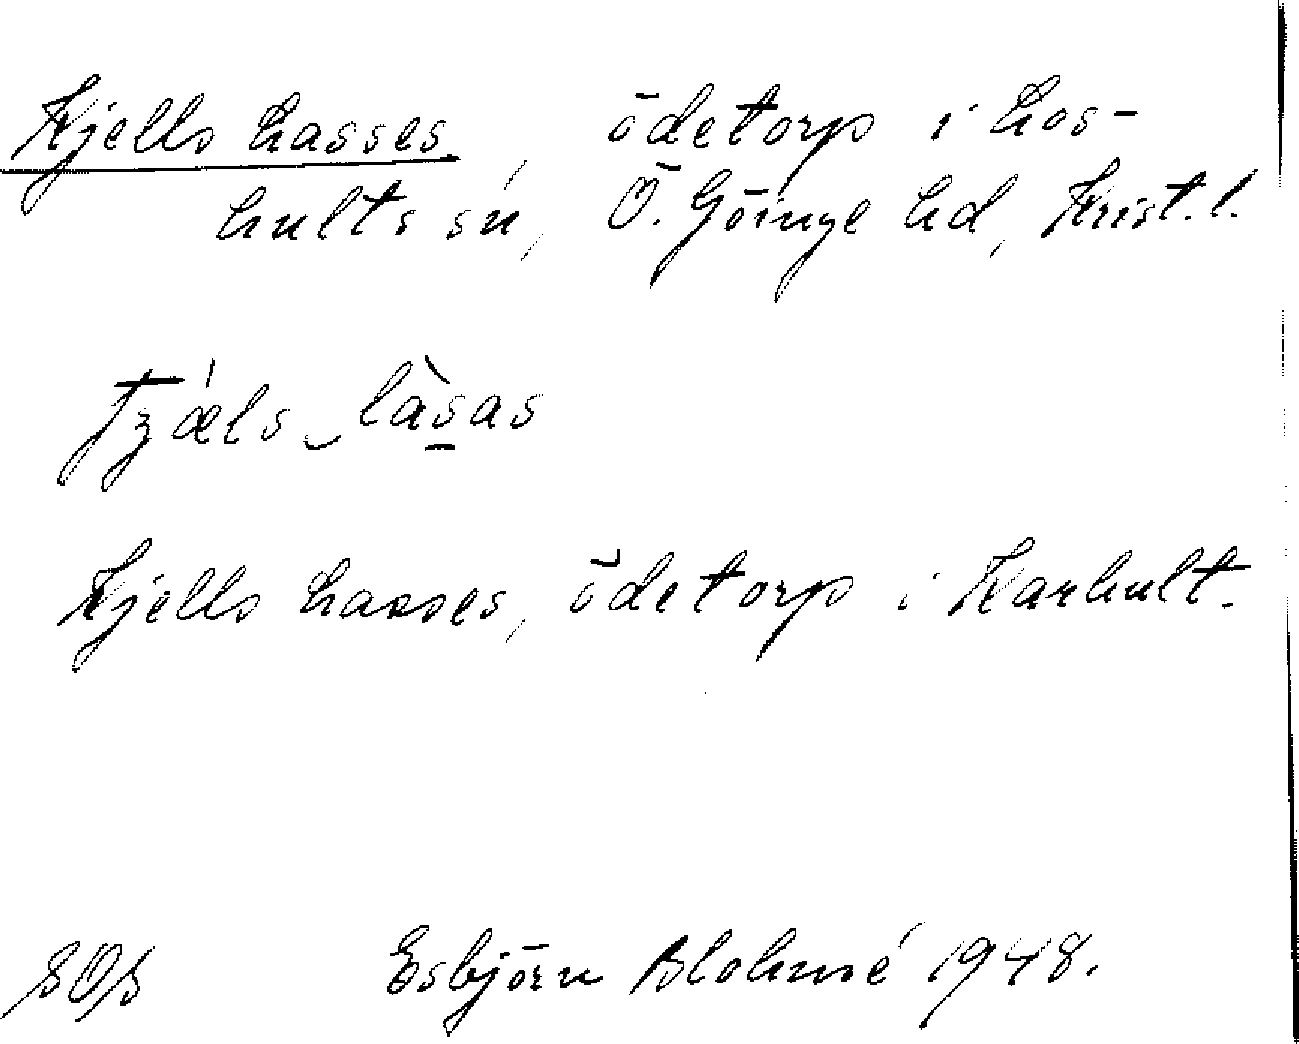 Kjells Lasses, ödetorp i Los-
hults sn, Ö. Göinge hd, Krist. l.
Tʒǽls ‿ làsas
Kjells Lasses, ödetorp i Karhult.
SOS Esbjörn Blohmé 1948.